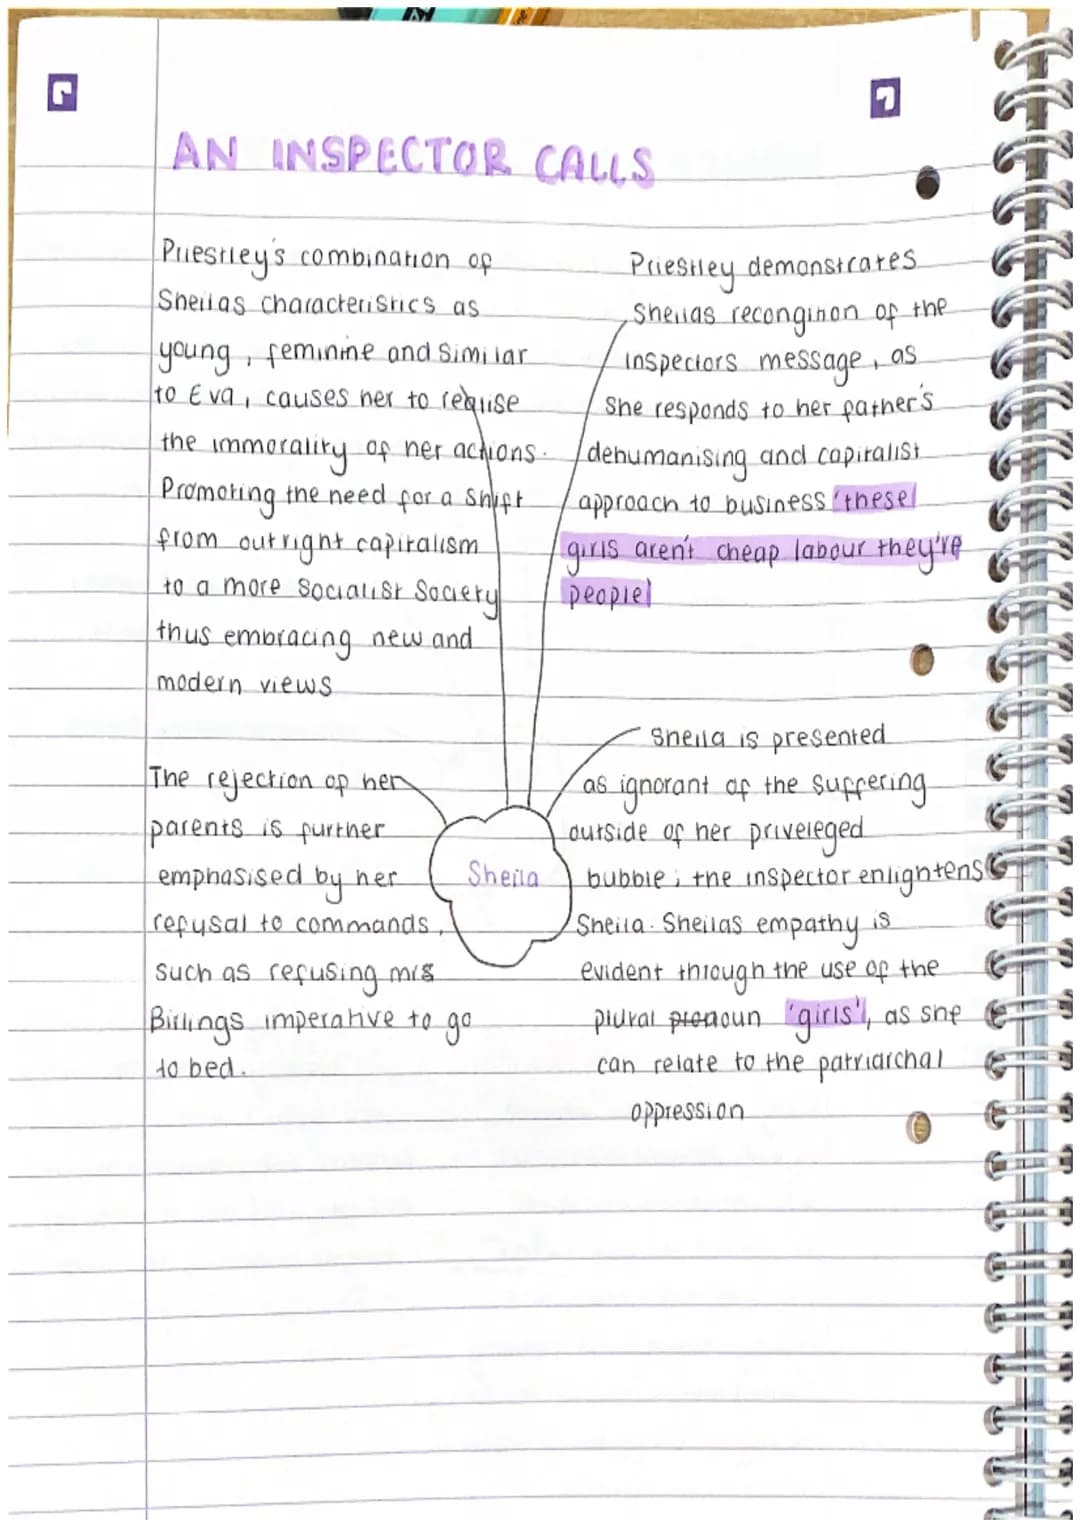 AN INSPECTOR CALLS
Priestley's combination of
Sheilas characteristics as
young, feminine and similar
to Eva, causes her to realise
the immorality of her actions.
Promoting the need for a shift
from outright capitalism
to a more Socialist Society
thus embracing new and
modern views
Priestley demonstrates
Sheilas recongition of the
inspectors message, as
she responds to her father's
dehumanising and capitalist
approach to business 'these
girls aren't cheap labour they're
people'
The rejection of her
parents is further
emphasised by her
refusal to commands,
such as refusing mrs
Birlings imperative to go
to bed.
Sheila
Sheila is presented
as ignorant of the suffering
outside of her priveleged
bubble; the inspector enlightens
Sheila. Sheilas empathy is
evident through the use of the
plural pronoun 'girls', as she
can relate to the patriarchal
oppression